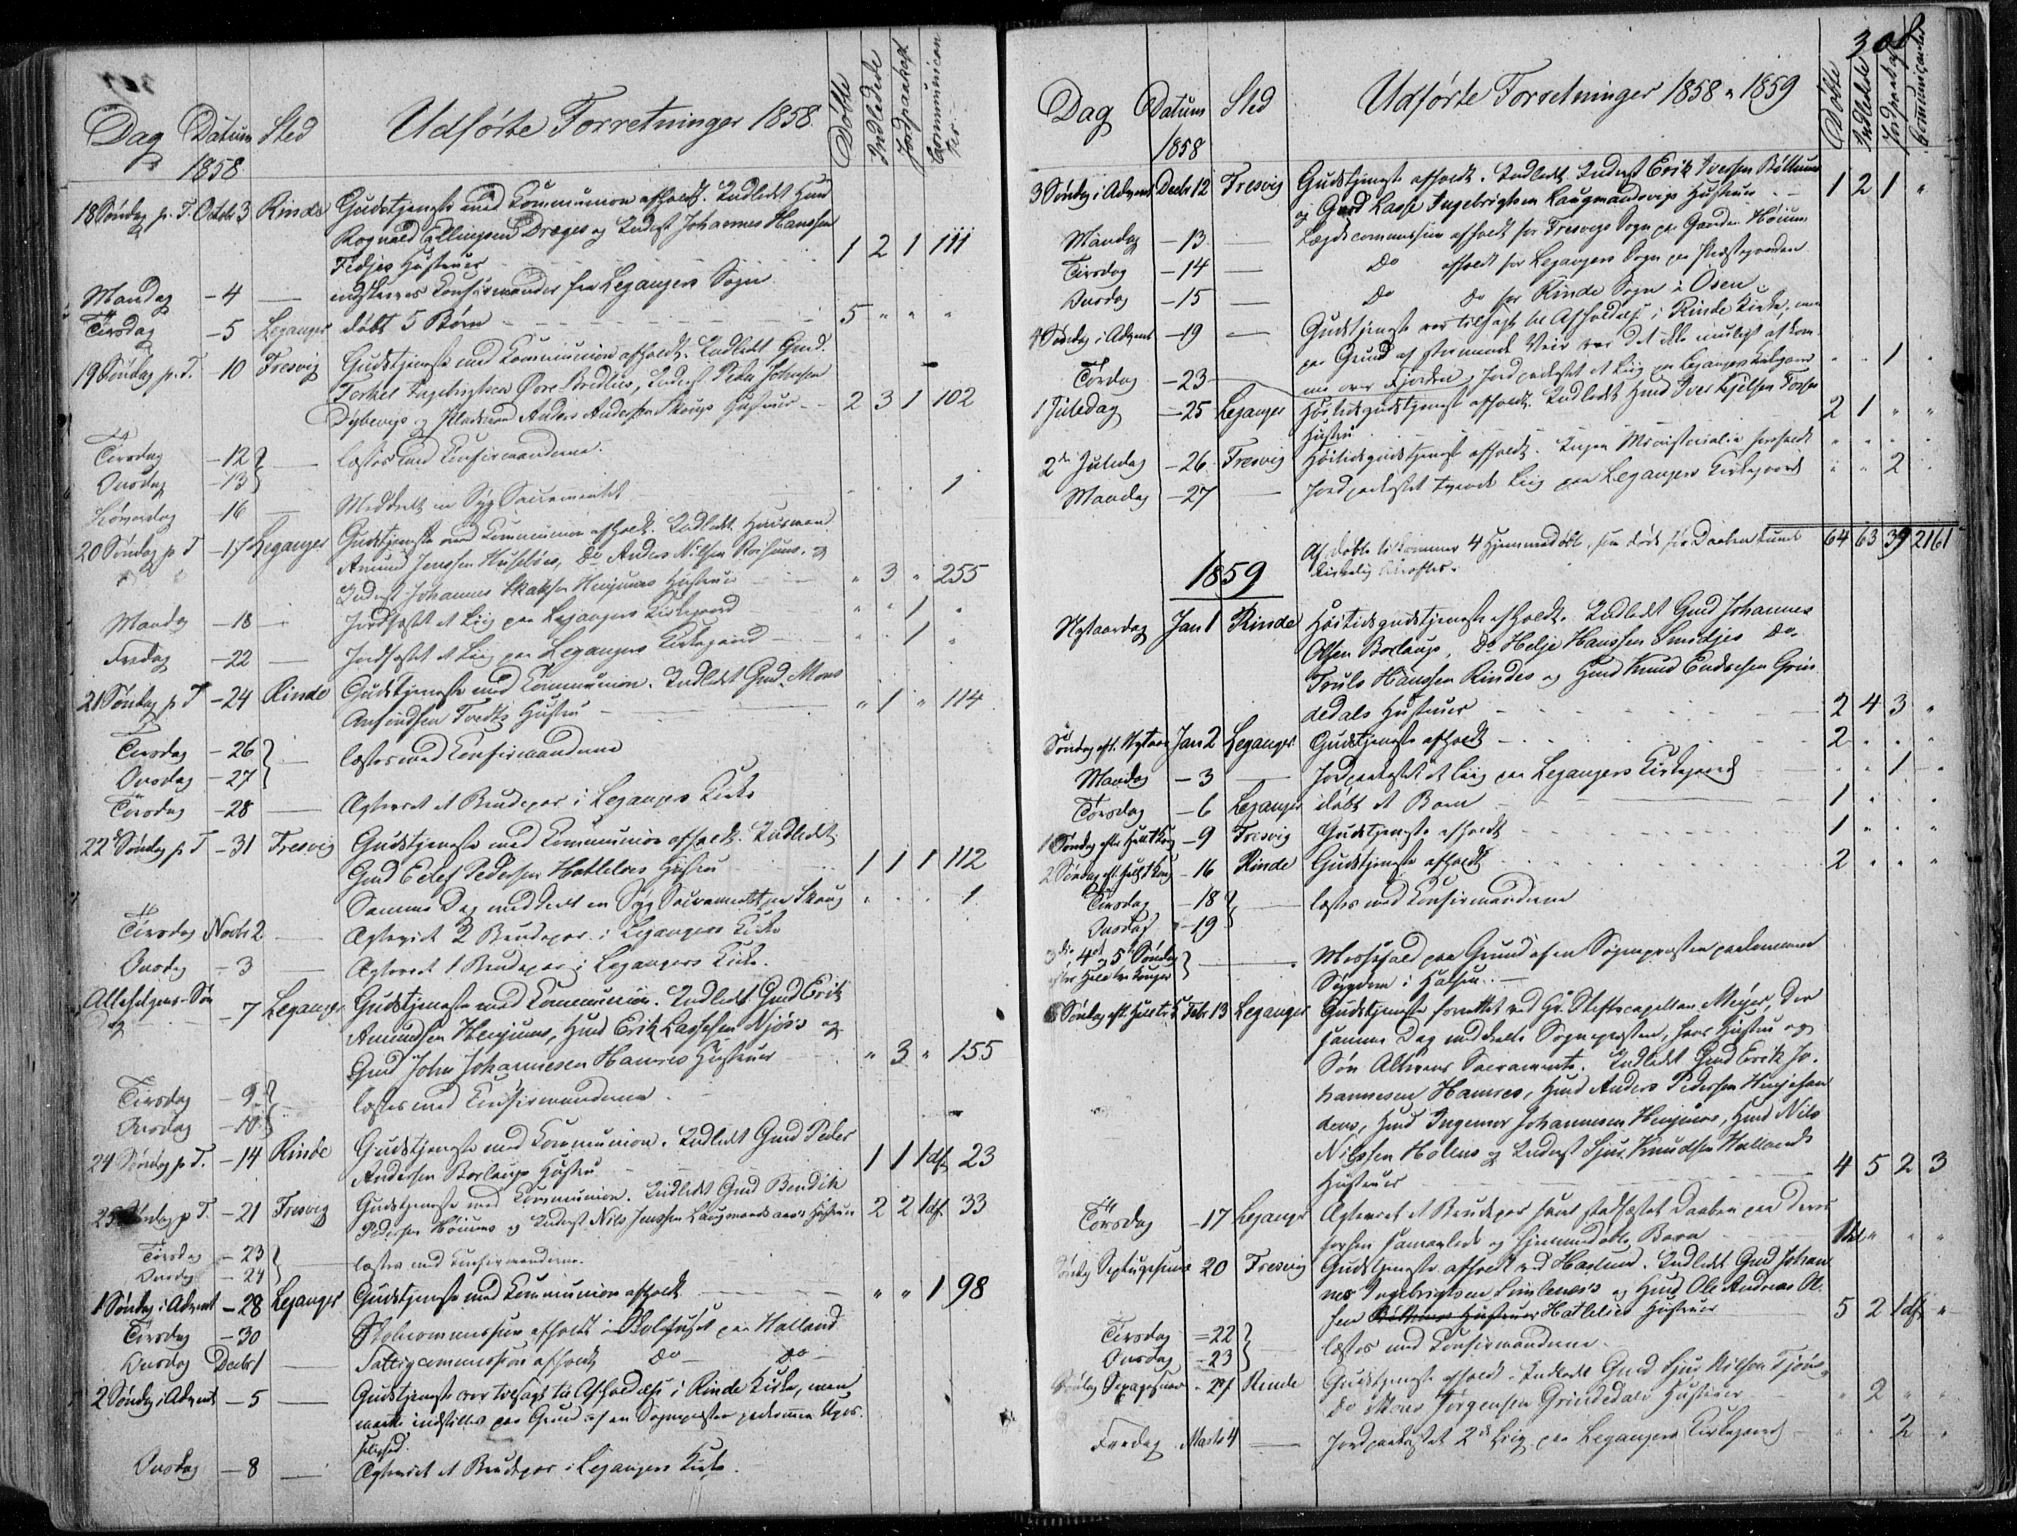 Dag Datum Sted Udførte Forretninger 1858. Døbte Indledede Jordpaakast Communicanter
1858
18 Søndag p. T. Octob 3 Rinde Gudstjeneste med Kommunion afholdt. Indledt Gmd
Rognald Ellingsen Dræges og Inderst Johannes Hanssen
Fedjes Hustruer 1 2 1 111
Mandag - 4 — indskreves Konfirmander fra Leganger Sogn
Tirsdag - 5 Leganger døbt 5 Børn 5 " " "
19 Søndag p. T. 10 Fresvig Gudstjeneste med Kommunion afholdt. Indledt Gmd.
Torkel Ingebrigtsen Øvre Bredlies, Inderst Peder Johnsen
Dybevigs og Pladsmd Anders Andersen Skougs Hustruer 2 3 1 102
Tirsdag - 12 } — læstes med Konfirmanderne.
Onsdag - 13
Løverdag 16 — Meddeelt en Syg Sacramentet 1
20 Søndag p T - 17 Leganger Gudstjeneste med Kommunion afholdt. Indledt Huusmand
Amund Jenssen Husebøes, Do Anders Nilsen Roisums, og
Inderst Johannes Skaksen Henjums Hustruer " 3 " 255
Mandag - 18 — Jordfæstet et Liig paa Legangers Kirkegaard " " 1 "
Fredag - 22 — Jordfæstet et Liig paa Legangers Kirkegaard " " 1 "
21 Søndag p T - 24 Rinde Gudstjeneste med Kommunion. Indledt Gmd. Mons
Anfindsen Tvedts Hustru " 1 " 114
Tirsdag - 26 } — læstes med Konfirmanderne
Onsdag - 27
Torsdag - 28 — Ægteviet et Brudepar i Legangers Kirke
22 Søndag p T - 31 Fresvig Gudstjeneste med Kommunion afholdt. Indledt
Gmd Edlef Pedersen Hatlelies Hustru 1 1 1 112
Samme Dag meddeelt en Syg Sacramentet paa Skoug 1
Tirsdag Novb 2 — Ægteviet 2 Brudepar i Legangers Kirke
Onsdag - 3 — Ægteviet 1 Brudepar i Legangers Kirke.
Allehelgens-Søn
dag - 7 Leganger Gudstjeneste med Kommunion. Indledt Gmd Erik
Amundsen Henjums, Hmd Erik Lassesen Njøs's og
Gmd John Johannesen Hamres Hustruer " 3 " 155
Tirsdag - 9 } — læstes med Konfirmanderne.
Onsdag - 10
24 Søndag p T. - 14 Rinde Gudstjeneste med Kommunion. Indledt Gmd Peder
Andersen Borlaugs Hustru 1 1 1df. 23
25 Søndag p T. - 21 Fresvig Gudstjeneste med Kommunion. Indledt Gmd Bendik
Pedersen Høiums og Inderst Nils Jenssen Laugmands Hustruer 2 2 1df. 33
Tirsdag - 23 } — læstes med Konfirmanderne.
Onsdag - 24
1 Søndag i Advent - 28 Leganger Gudstjeneste med Kommunion afholdt " " 1 98
Tirsdag - 30 Skolecommission afholdt i Skolehuset paa Holland
Onsdag Decbr 1 — Fattigcommission afholdt Do — Do —
2 Søndag i Advent - 5 — Gudstjeneste var tilsagt til Afholdelse i Rinde Kirke, men
maatte indstilles paa Grund af en Sognepræsten paakommen Upas-
selighed.
Onsdag - 8 — Ægteviet et Brudepar i Legangers Kirke.
308
Dag Datum Sted Udførte Forretninger 1858 " 1859 Døbte Indledede Jordpaakast Communicanter
1858
3 Søndag i Advent Decbr 12 Fresvig Gudstjeneste afholdt. Indledt Inderst Erik Iversen Bøttuns
og Gmd Lasse Ingebrigtsen Laugmandsvigs Hustruer 1 2 1 "
Mandag - 13 — Lægdscommission afholdt for Fresvigs Sogn paa Gaarden Høium
Tirsdag - 14 — Do afholdt for Legangers Sogn paa Præstegaarden
Onsdag - 15 — Do Do for Rinde Sogn i Osen
4 Søndag i Advent - 19 — Gudstjeneste var tilsagt til Afholdelse i Rinde Kirke, men
paa Grund af stormende Veir var det ikke muligt at kom-
me over Fjorden.
Torsdag - 23 Jordpaakastet et Liig paa Legangers Kirkegaard " " 1 "
1 Juledag - 25 Leganger Høitidsgudstjeneste afholdt. Indledt Hmd Iver Kjelsen Fosse
Hustru 2 1 " "
2den Juledag - 26 Fresvig Høitidsgudstjeneste afholdt. Ingen Ministerialia forefaldt " " " "
Mandag - 27 — Jordpaakastet tvende Liig paa Legangers Kirkegaard " " 2 "
Af døbte tilkommer 4 Hjemmedøbte, som døde før Daaben kunde 64 63 39 2161
kirkelig bekræftes.
1859
Nytaarsdag Jan 1 Rinde Høitidsgudstjeneste afholdt. Indledt Gmd Johannes
Olsen Borlaugs, Do Helje Hanssen Smidjes Do.
Truls Hanssen Rindes og Hmd Knud Endresen Grin-
dedals Hustruer 2 4 3 "
Søndag eft. Nytaar Jan 2 Leganger Gudstjeneste afholdt 2 " " "
Mandag - 3 — Jordpaakastet et Liig paa Legangers Kirkegaard " " 1 "
Torsdag - 6 Leganger døbt et Barn 1 " " "
1 Søndag efter Hell 3 Kong - 9 Fresvig Gudstjeneste afholdt 1 " " "
2 Søndag eft hell 3 Kong - 16 Rinde Gudstjeneste afholdt 2 " " "
Tirsdag - 18 } — læstes med Konfirmanderne
Onsdag - 19
3die, 4de og 5te Søndag
efter Helltre Konger } — Messefald paa Grund af en Sognepræsten paakommen
Sygdom i Halsen. —
Søndag eft. hell tre K Febr 13 Leganger Gudstjeneste forrettet ved Hr. Stiftscapellan Meyer, der
samme Dag meddeelte Sognepræsten, hans Hustru og
Søn Altarens Sacramente. Indledt Gmd Erik Jo-
hannesen Hamres, Hmd Anders Pedersen Henjesan-
dens, Hmd Ingemor Johannesen Henjums, Hmd Nils
Nilssen Holens og Inderst Sjur Knudsen Hollands
Hustruer 4 5 2 3
Torsdag - 17 Leganger Ægteviet et Brudepar samt stadfæstet Daaben paa deres
forhen sammenlede og hjemmedøbte Barn " " "
Søndag Septuagesima 20 Fresvig Gudstjeneste afholdt ved Haslund. Indledt Gmd Johan-
nes Ingebrigtsen Simlenes's og Hmd Ole Andreas Ol-
sen Hatleliens Hustruer 5 2 1df. "
Tirsdag - 22 } — læstes med Konfirmanderne.
Onsdag - 23
Søndag Sexagesima - 27 Rinde Gudstjeneste afholdt. Indledt Gmd Sjur Nilsen Fjørs,
Do Mons Jørgensen Grindedals Hustruer " 2 " "
Fredag Marts 4 — Jordpaakastet 2de Liig paa Legangers Kirkegaard " " 2 "